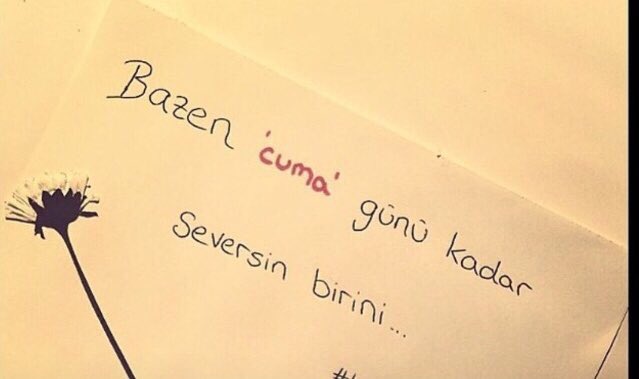 Bazen 'cuma' günü kadar
Seversin birini...